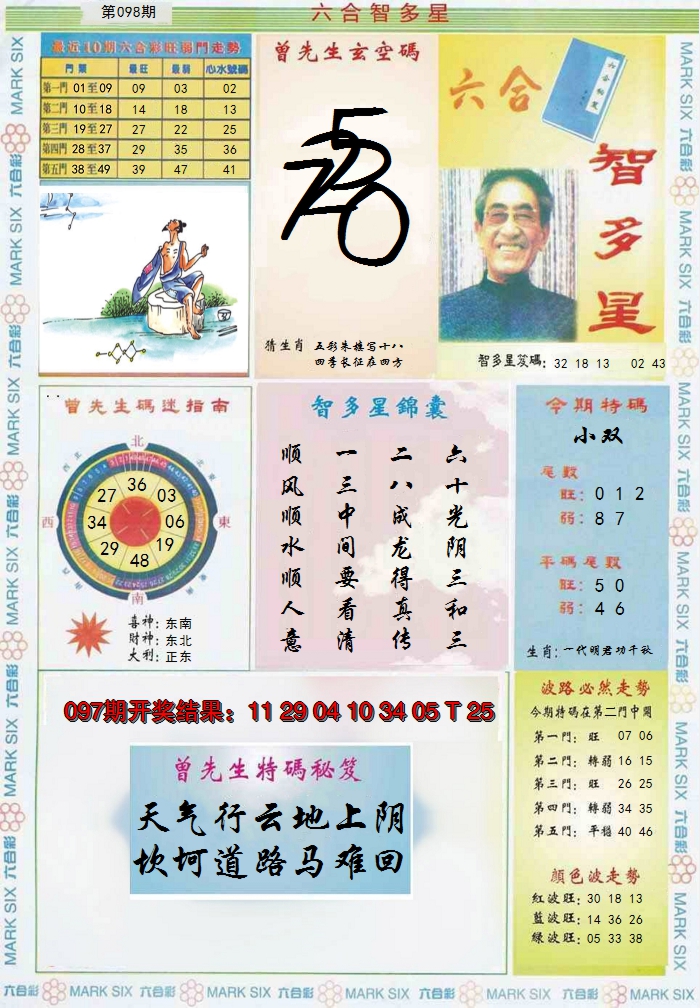 第098期
六合智多星
最近10期六合彩旺弱門走勢
門票 最旺 最弱 心水號碼
第一門 01至09 09 03 02
第二門 10至18 14 18 13
第三門 19至27 27 22 25
第四門 28至37 29 35 36
第五門 38至49 39 47 41
曾先生玄空碼
猜生肖 五彩朱楼写十八
四季长征在四方
六合
智多星
智多星笈碼: 32 18 13 02 43
曾先生碼迷指南
北
東
南
西
36
03
06
19
48
29
34
27
喜神: 东南
财神: 东北
大利: 正东
智多星錦囊
顺风顺水顺人意
一三中间要看清
二八成龙得真传
六十光阴三和三
今期特碼
小双
尾數
旺: 0 1 2
弱: 8 7
平碼尾數
旺: 5 0
弱: 4 6
生肖: 一代明君功千秋
097期开奖结果: 11 29 04 10 34 05 T 25
曾先生特碼秘笈
天气行云地上阴
坎坷道路马难回
波路必然走勢
今期特碼在第二門中開
第一門: 旺 07 06
第二門: 轉弱 16 15
第三門: 旺 26 25
第四門: 轉弱 34 35
第五門: 平穩 40 46
顏色波走勢
紅波旺: 30 18 13
藍波旺: 14 36 26
綠波旺: 05 33 38
六合彩 MARK SIX 六合彩 MARK SIX 六合彩 MARK SIX 六合彩 MARK SIX 六合彩